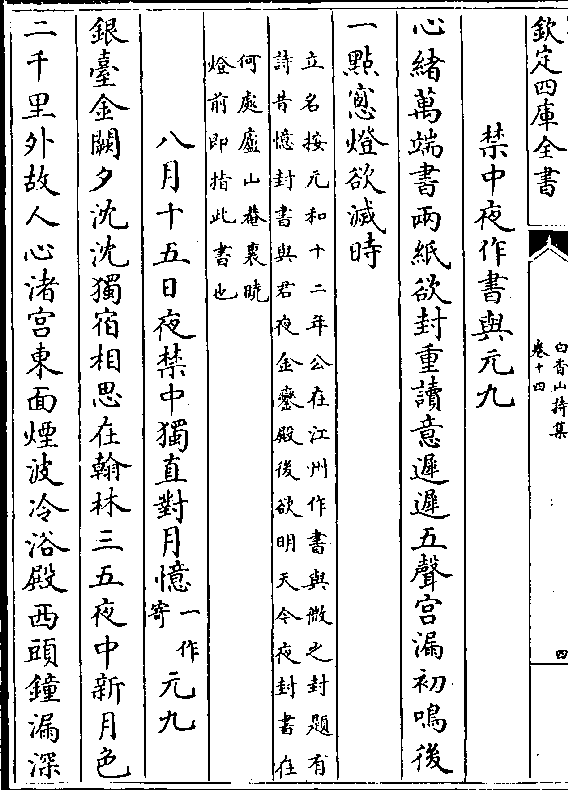 欽定四庫全書
白香山詩集
卷十四
四
禁中夜作書與元九
心緒萬端書兩紙欲封重讀意遲遲五聲宫漏初鳴後
一點窻燈欲滅時
立名按元和十二年公在江州作書與微之封題有
詩昔憶封書與君夜金鑾殿後欲明天今夜封書在
何處廬山菴裏曉
燈前即指此書也
八月十五日夜禁中獨直對月憶一作寄元九
銀臺金闕夕沈沈獨宿相思在翰林三五夜中新月色
二千里外故人心渚宫東面煙波冷浴殿西頭鐘漏深